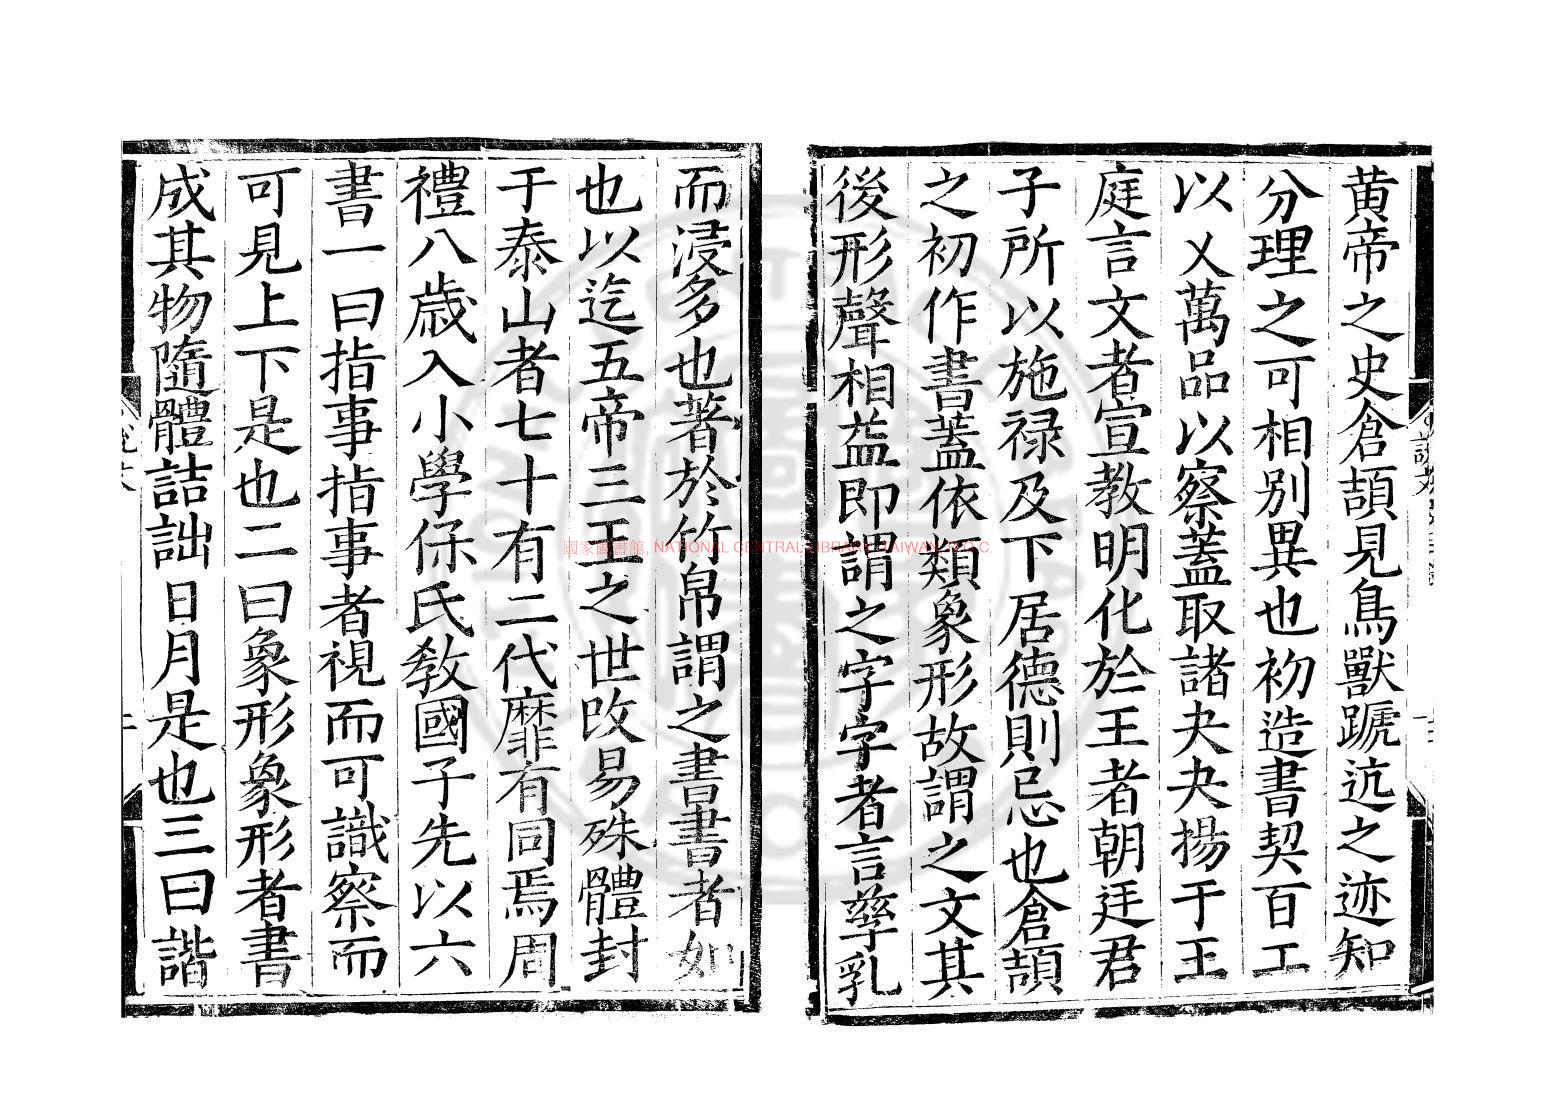 黄帝之史倉頡見鳥獸蹏迒之迹知
分理之可相别異也初造書契百工
以乂萬品以察蓋取諸夬夬揚于王
庭言文者宣教明化於王者朝廷君
子所以施禄及下居德則忌也倉頡
之初作書蓋依類象形故謂之文其
後形聲相益即謂之字字者言孳乳
而浸多也著於竹帛謂之書書者如
也以迄五帝三王之世改易殊體封
于泰山者七十有二代靡有同焉周
禮八歳入小學保氏教國子先以六
書一曰指事指事者視而可識察而
可見上下是也二曰象形象形者書
成其物隨體詰詘日月是也三曰諧
說文
國家圖書館, NATIONAL CENTRAL LIBRARY, TAIWAN, R.O.C.